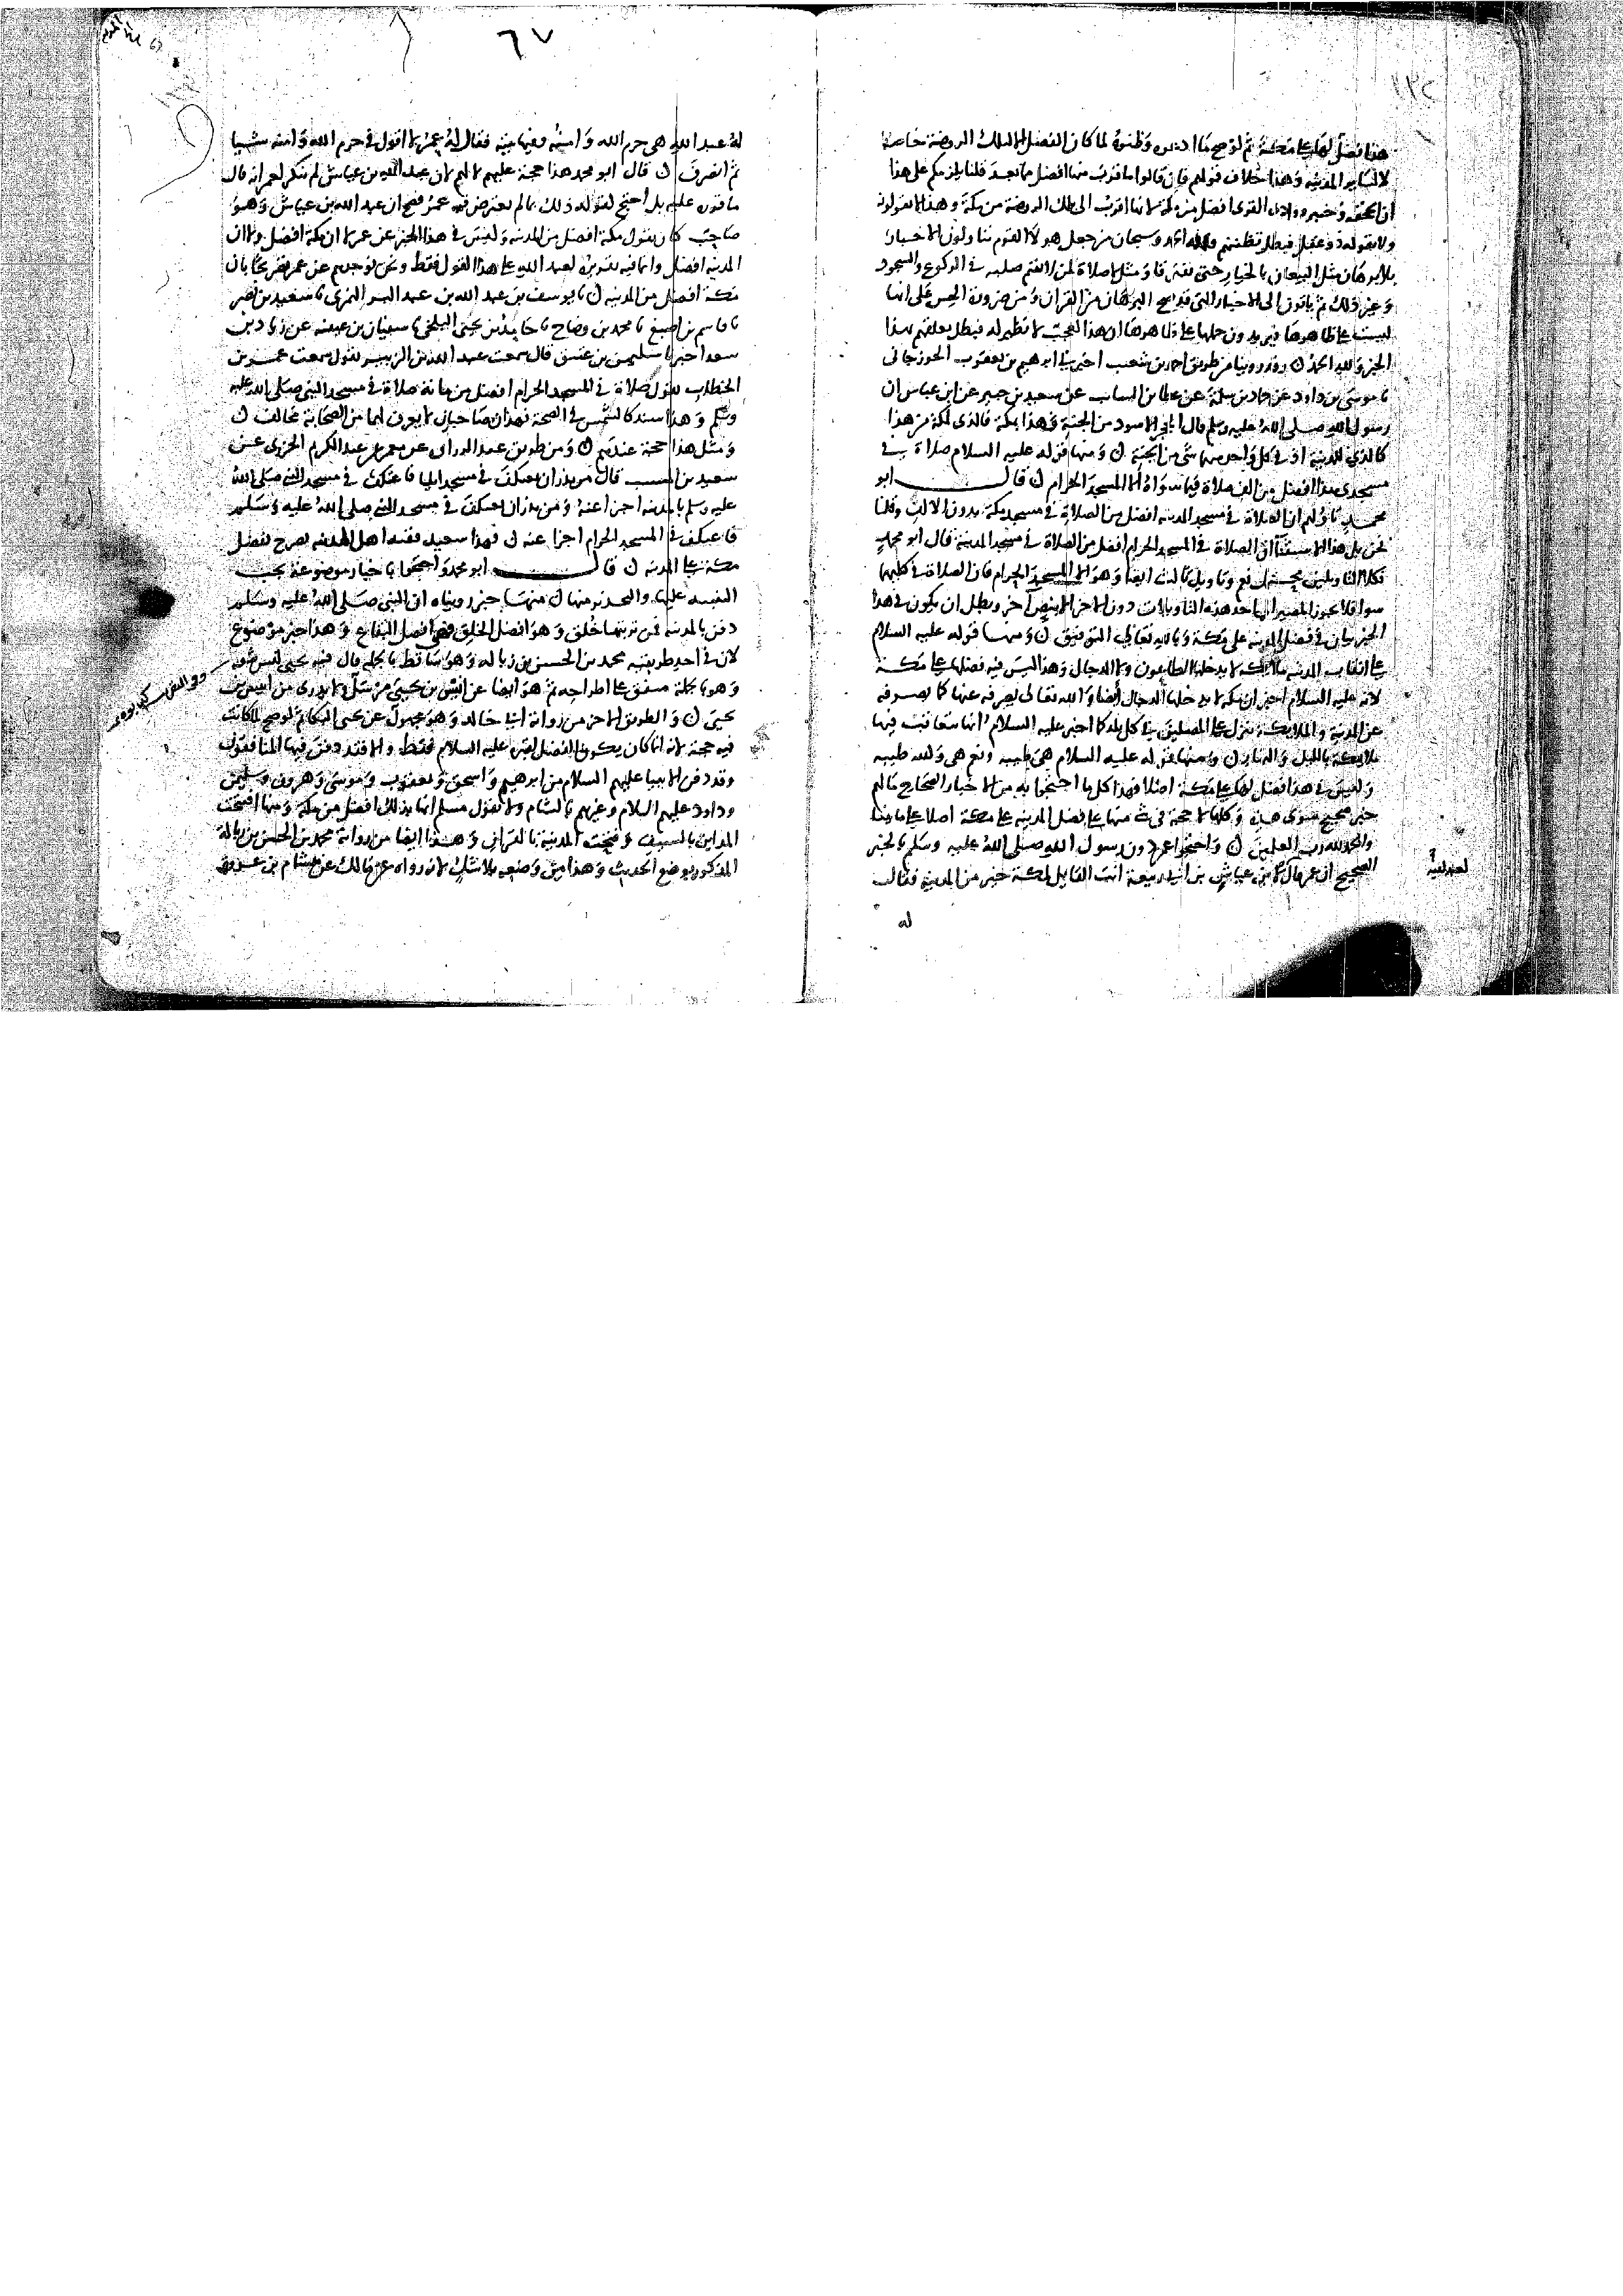 هذا فضل لها على مكة ثم لو صح ما ادعوه وظنوه لما كان الفضل الا لتلك الروضة خاصة
لا لسائر المدينة وهذا خلاف قولهم فان قالوا ما قرب منها افضل مما بعد قلنا يلزمكم على هذا
ان الجحفة وخيبر ووادى القرى افضل من مكة لانها اقرب الى تلك الروضة من مكة وهذا لا يقولونه
ولا يقوله ذو عقل فبطل تظننهم ولله الحمد وسبحان من جعل هولا القوم يتاولون الاخبار
بلا برهان مثل البيعان بالخيار حتى يفترقا ومثل لا صلاة لمن لا يقيم صلبه فى الركوع والسجود
وغير ذلك ثم ياتون الى الاخبار التى قد صح البرهان من القران ومن ضرورة الحس على انها
ليست على ظاهرها فيريدون حملها على ظاهرها ان هذا لعجب لا نظير له فبطل تعلقهم بهذا
الخبر ولله الحمد ن وقد روينا من طريق احمد بن شعيب اخبرنى ابرهيم بن يعقوب الجوزجانى
نا موسى بن داود عن حماد بن سلمة عن عطا بن السايب عن سعيد بن جبير عن ابن عباس ان
رسول الله صلى الله عليه وسلم قال الحجر الاسود من الجنة وهذا بمكة فالذى لمكة من هذا
كالذى للمدينة اذ فى كل واحد منهما شى من الجنة ن ومنها قوله عليه السلام صلاة فى
مسجدى هذا افضل من الف صلاة فيما سواه الا المسجد الحرام ن قال ابو
محمد تاولهم ان الصلاة فى مسجد المدينة افضل من الصلاة فى مسجد مكة بدون الالف وقلنا
نحن بل هذا الاستثنا ان الصلاة فى المسجد الحرام افضل من الصلاة فى مسجد المدينة قال ابو محمد
فكلا التاويلين محتمل نعم وتاويل ثالث ايضا وهو الا المسجد الحرام فان الصلاة فى كليهما
سوا فلا يجوز المصير الى احد هذه التاويلات دون الاخر الا بنص اخر وبطل ان يكون فى هذا
الخبر بيان فى فضل المدينة على مكة وبالله تعالى التوفيق ن ومنها قوله عليه السلام
على انقاب المدينة ملائكة لا يدخلها الطاعون ولا الدجال وهذا ليس فيه فضلها على مكة
لانه عليه السلام اخبر ان مكة لا يدخلها الدجال ايضا والله تعالى يصرفه عنها كما يصرفه
عن المدينة والملائكة تنزل على المصلين فى كل بلد كما اخبر عليه السلام انها تتعاقب فينا
ملائكة بالليل والنهار ن ومنها قوله عليه السلام هى طيبة ونعم هى والله طيبة
وليس فى هذا فضل لها على مكة اصلا فهذا كل ما احتجوا به من الاخبار الصحاح ما لهم
خبر صحيح سوى هذه وكلها لا حجة فى شى منها على فضل المدينة على مكة اصلا على ما بينا
والحمد لله رب العلمين ن واحتجوا عن عمر دون رسول الله صلى الله عليه وسلم بالخبر
الصحيح ان عمر قال لعبد الله بن عياش بن ابى ربيعة انت القايل لمكة خير من المدينة فقال
له
له عبد الله هى حرم الله وامنه وفيها بيته فقال له عمر لا اقول فى حرم الله وامنه شيا
ثم انصرف ن قال ابو محمد هذا حجة عليهم لا لهم لان عبد الله بن عياش لم ينكر لعمر انه قال
ما قرره عليه بل احتج لقوله ذلك بما لم يعترض فيه عمر فصح ان عبد الله بن عياش وهو
صاحب كان يقول مكة افضل من المدينة وليس فى هذا الخبر عن عمر لا ان مكة افضل ولا ان
المدينة افضل وانما فيه تقريره لعبد الله على هذا القول فقط ونحن نوجدهم عن عمر تصريحا بان
مكة افضل من المدينة ن نا يوسف بن عبد الله بن عبد البر النمرى نا سعيد بن نصر
نا قاسم بن اصبغ نا محمد بن وضاح نا حامد بن يحيى البلخى نا سفيان بن عيينة عن زياد بن
سعد اخبرنا سليمن بن عتيق قال سمعت عبد الله بن الزبير يقول سمعت عمر بن
الخطاب يقول صلاة فى المسجد الحرام افضل من مائة صلاة فى مسجد النبى صلى الله عليه
وسلم وهذا سند كالشمس فى الصحة فهذان صاحبان لا يعرف لهما من الصحابة مخالف ن
ومثل هذا حجة عندهم ن ومن طريق عبد الرزاق عن معمر عن عبد الكريم الجزرى عن
سعيد بن المسيب قال من نذر ان يعتكف فى مسجد ايليا فاعتكف فى مسجد النبى صلى الله
عليه وسلم بالمدينة اجزا عنه ومن نذر ان يعتكف فى مسجد النبى صلى الله عليه وسلم
فاعتكف فى المسجد الحرام اجزا عنه ن فهذا سعيد فقيه اهل المدينة يصرح بفضل
مكة على المدينة ن قال ابو محمد واحتجوا باخبار موضوعة يجب
التنبيه عليها والتحذير منها ن منها خبر رويناه ان النبى صلى الله عليه وسلم
دفن بالمدينة فمن تربتها خلق وهو افضل الخلق فهى افضل البقاع وهذا خبر موضوع
لان فى احد طريقيه محمد بن الحسن بن زبالة وهو ساقط بالجملة قال فيه يحيى ليس بثقة
وهو بالجملة متفق على اطراحه ثم هو ايضا عن انيس بن يحيى مرسل ولا يدرى من انيس بن
يحيى ن والطريق الاخر من رواية ابى خالد وهو مجهول عن يحيى البكا ثم لو صح لما كانت
فيه حجة لانه انما كان يكون الفضل لقبره عليه السلام فقط والا فقد دفن فيها المنافقون
وقد دفن الانبيا عليهم السلام من ابرهيم واسحق ويعقوب وموسى وهرون وسليمن
وداود عليهم السلام وغيرهم بالشام ولا يقول مسلم انها بذلك افضل من مكة ومنها افتتحت
المداين بالسيف وفتحت المدينة بالقران وهذا ايضا من رواية محمد بن الحسن بن زبالة
المذكور بوضع الحديث وهذا من وضعه بلا شك لانه رواه عن مالك عن هشام بن عروة